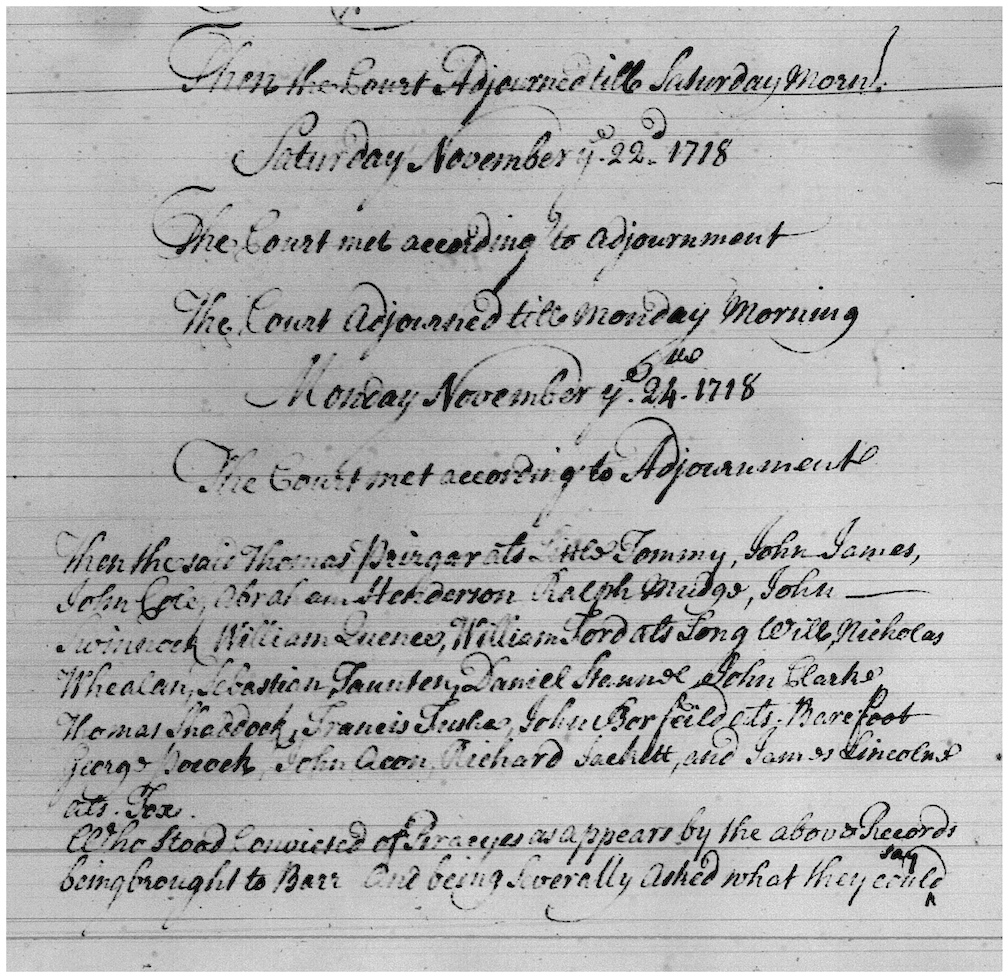 Then the Court Adjourned till Saturday Morn:
Saturday November yᵉ. 22ᵈ. 1718
The Court met according to Adjournment
The Court Adjourned till Monday Morning
Monday November yᵉ. 24ᵗʰ. 1718
The Court met according to Adjournment
Then the said Thomas Prizgar als Little Tommy, John James,
John Cole, Abraham Henderson Ralph Mudge, John
Swinnock William Quence, William Ford als Long Will, Nicholas
Whealan, Sebastian Taunten, Daniel Stannel John Clarke
Thomas Shaddock, Francis Tuske, John Borfeild als. Barefoot
George Pocock, John Acon, Richard Sackett, and James Lincolne
als. Fox.
Who stood Convicted of Piracyes as appears by the above Records
being brought to Barr And being severally Asked what they could say